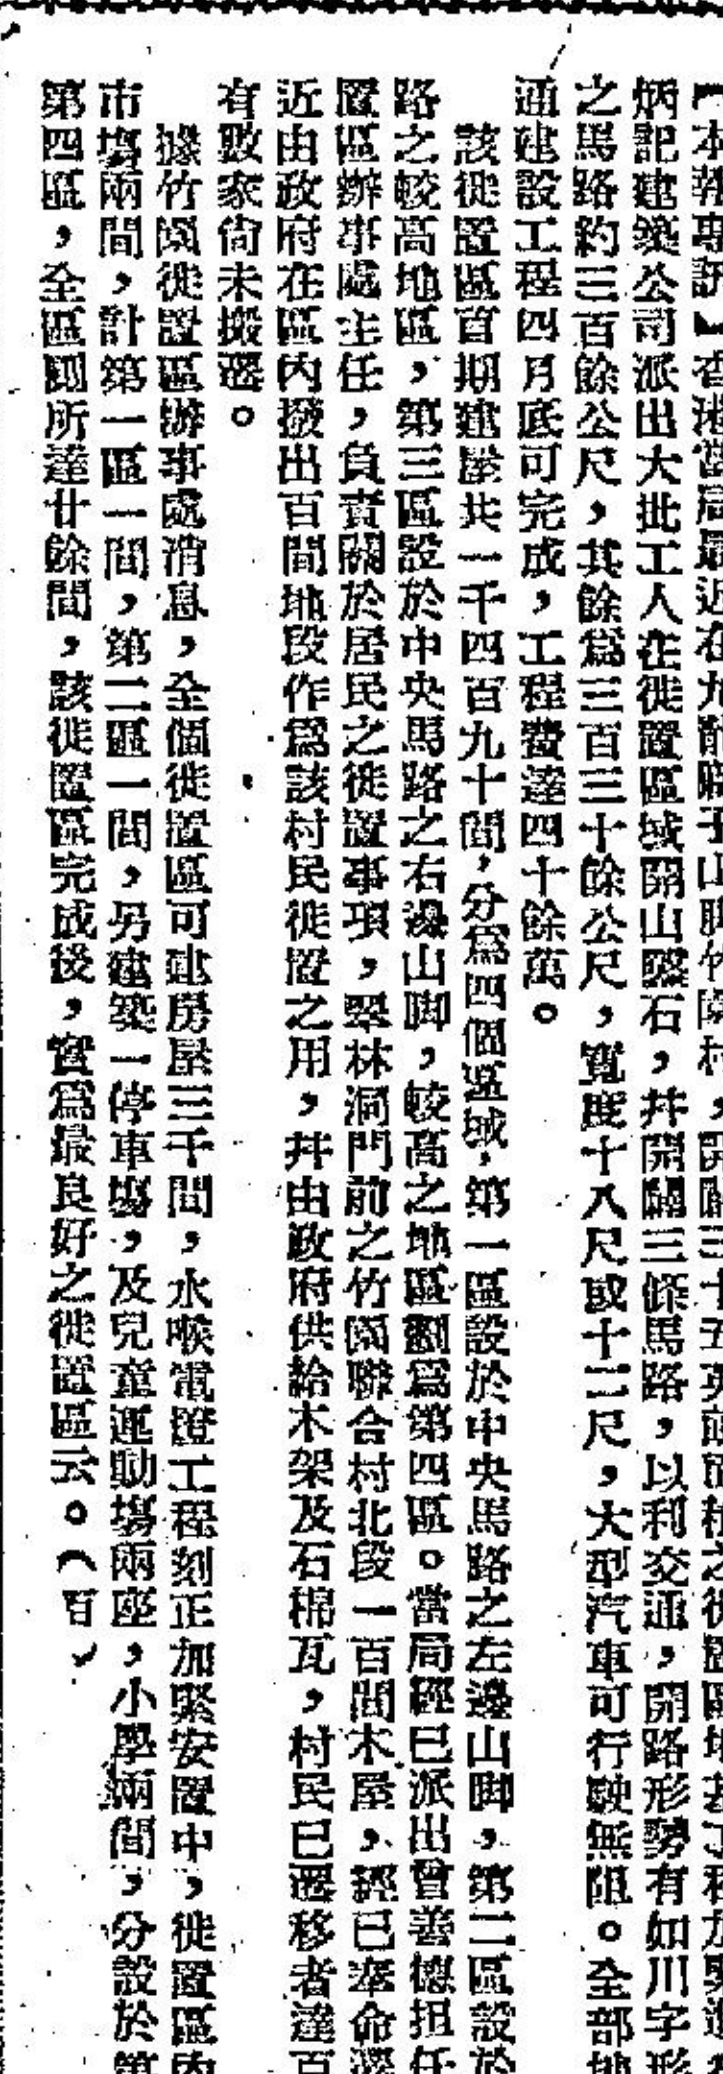 【本報專訊】香港當局最近在九龍獅子山脚竹園村，開闢三十五英畝面積之徙置區域基工程加緊進行
炳記建築公司派出大批工人在徙置區域開山劈石，幷開闢三條馬路，以利交通，開路形勢有如川字形
之馬路約三百餘公尺，其餘爲三百三十餘公尺，寬度十八尺或十二尺，大型汽車可行駛無阻。全部地
通建設工程四月底可完成，工程費達四十餘萬。
該徙置區首期建屋共一千四百九十間，分爲四個區域，第一區設於中央馬路之左邊山脚，第二區設於
路之較高地區，第三區設於中央馬路之右邊山脚，較高之地區劃爲第四區。當局經已派出曾善德担任
置區辦事處主任，負責關於居民之徙置事項，翠林洞門前之竹園聯合村北段一百間木屋，經已奉命遷
近由政府在區內撥出百間地段作爲該村民徙置之用，幷由政府供給木架及石棉瓦，村民已遷移者達百
有數家尙未搬遷。
據竹園徙置區辦事處消息，全個徙置區可建房屋三千間，水喉電燈工程刻正加緊安置中，徙置區內
市塲兩間，計第一區一間，第二區一間，另建築一停車塲，及兒童運動塲兩座，小學兩間，分設於第
第四區，全區厠所達廿餘間，該徙置區完成後，實爲最良好之徙置區云。（百）